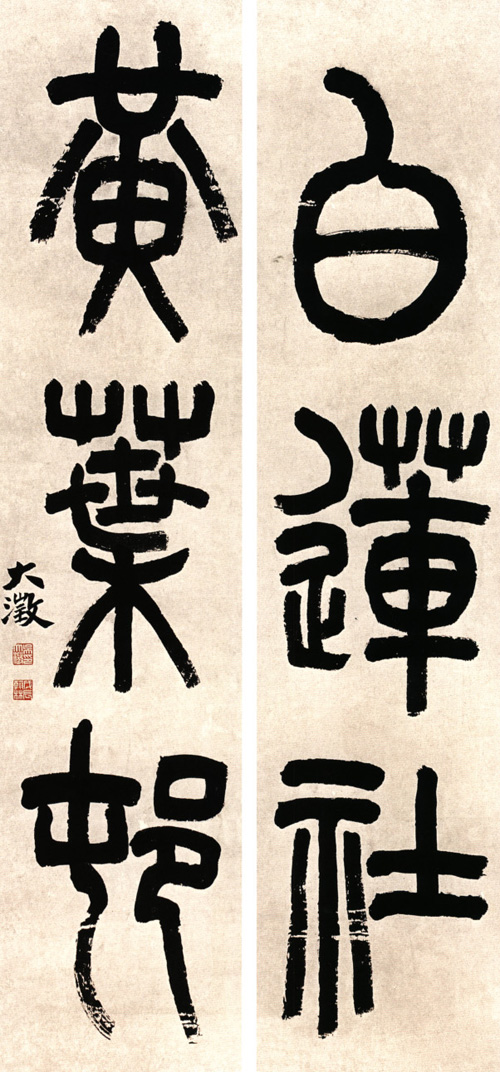 白蓮社
黃葉邨
大澂